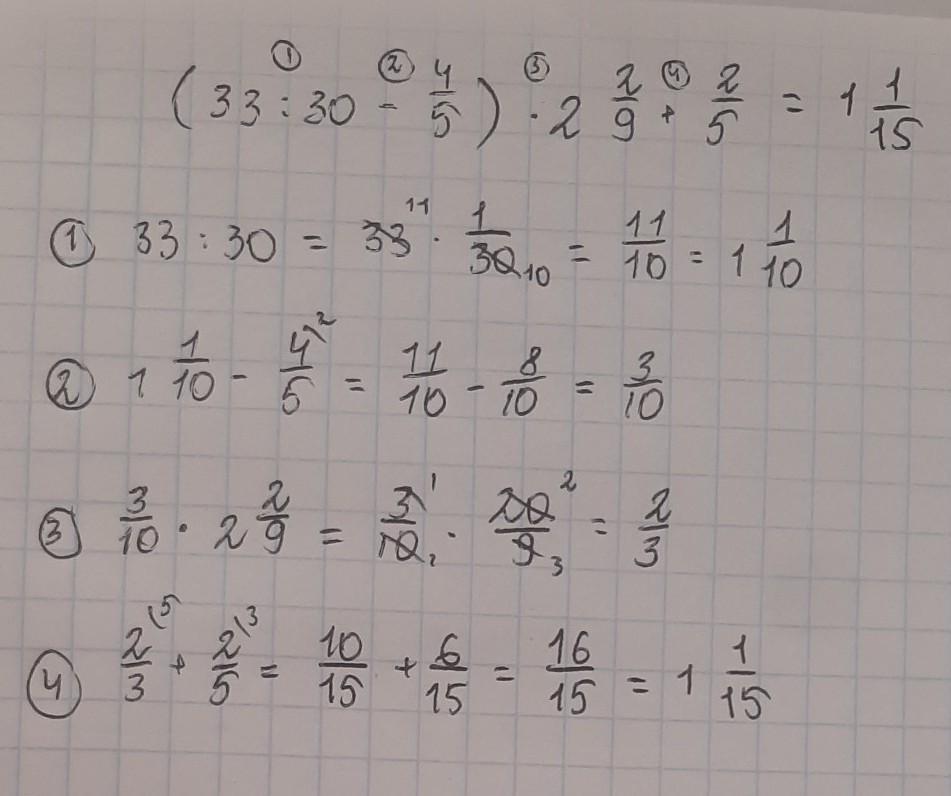 ① ② ③ ④
(33 : 30 - 4/5) · 2 2/9 + 2/5 = 1 1/15
① 33 : 30 = 33 ¹¹ · 1/30 ₁₀ = 11/10 = 1 1/10
② 1 1/10 - 4\²/5 = 11/10 - 8/10 = 3/10
③ 3/10 · 2 2/9 = 3 ¹/10 ₁ · 20 ²/9 ₃ = 2/3
④ 2\⁵/3 + 2\³/5 = 10/15 + 6/15 = 16/15 = 1 1/15